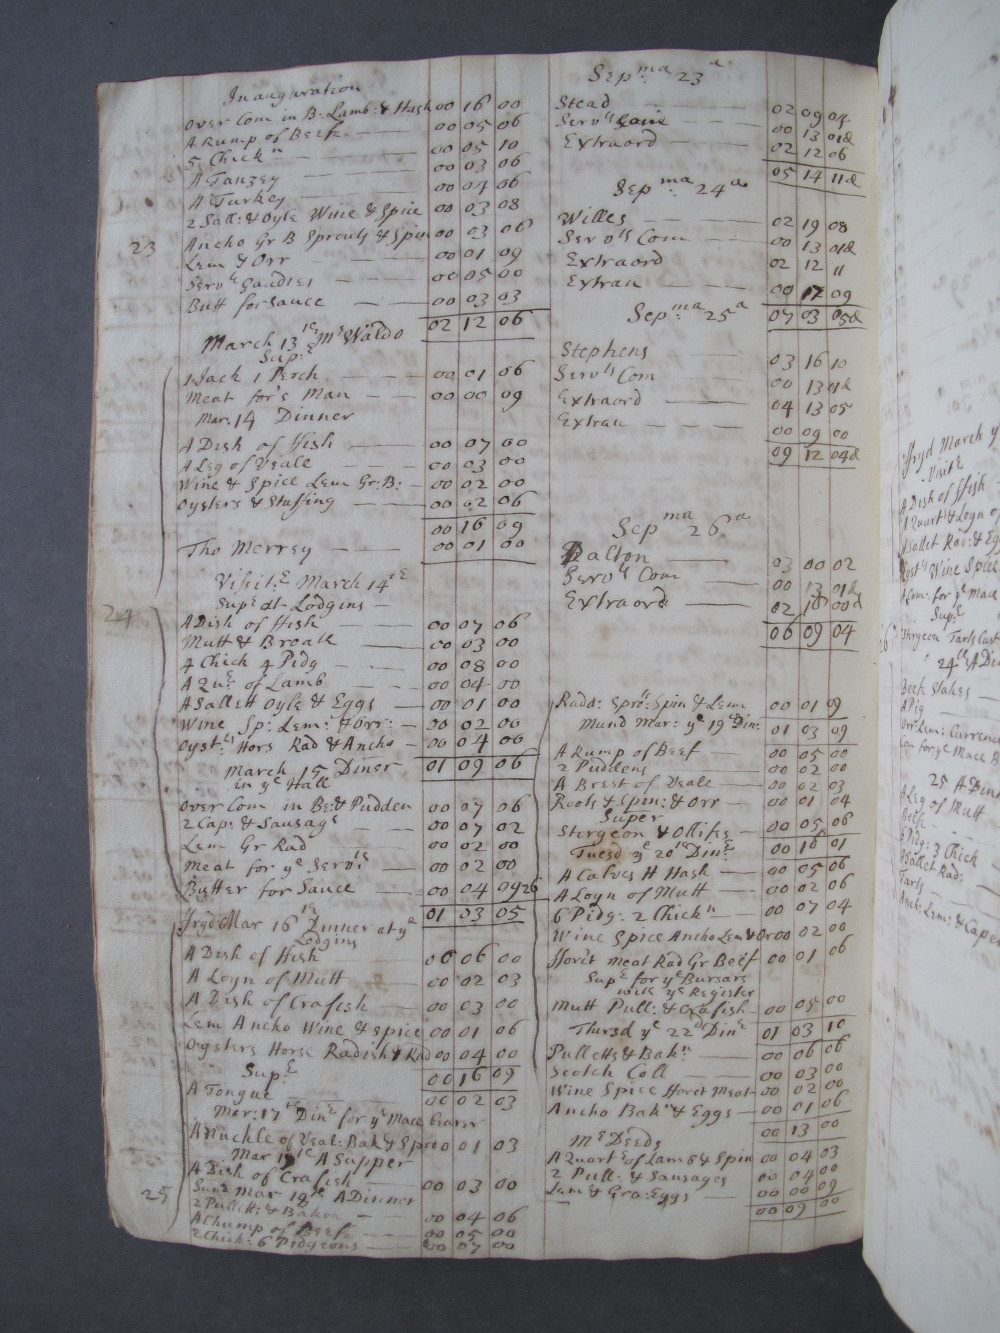 Inauguration
Over Com in B: Lamb: & Hash 00 16 00
A Rump of Beef 00 05 06
5 Chickn 00 05 10
A Tanzey 00 03 06
A Turkey 00 04 06
2 Sall: & Oyle Wine & Spice 00 03 08
23
Ancho Gr B Sprouts & Spin 00 03 06
Lem & Orr 00 01 09
Servts Gaudies 00 05 00
Butt for Sauce 00 03 03
02 12 06
March 13th Mr Waldo
Supr
1 Jack 1 Perch 00 01 06
Meat for's Man 00 00 09
Mar: 14 Dinner
A Dish of ffish 00 07 00
A Leg of Veale 00 03 00
Wine & Spice Lem Gr: B: 00 02 00
Oysters & Stuffing 00 02 06
00 16 09
Tho Merrey 00 01 00
Visitr March 14th
24
Supr at Lodgins
A Dish of ffish 00 07 06
Mutt & Broath 00 03 00
4 Chick 4 Pidg 00 08 00
A Qur of Lamb 00 04 00
A Sallett Oyle & Eggs 00 01 00
Wine Sp: Lem: & Orr: 00 02 00
Oysts Hors Rad & Ancho 00 04 00
01 09 06
March 15 Diner
in ye Hall
Over Com in Be: & Pudden 00 07 06
2 Cap: & Sausags 00 07 02
Lem Gr Rad 00 02 00
Meat for ye Servts 00 02 00
Butter for Sauce 00 04 09
01 03 05
Fryd Mar 16th Dinner at ye
Lodgins
A Dish of ffish 00 06 00
A Loyn of Mutt 00 02 03
A Dish of Crafish 00 03 00
Lem Ancho Wine & Spice 00 01 06
Oysters Horse Radish & Rad 00 04 00
00 16 09
Supr
A Tongue 00 02 03
Mar: 17th Dinr for ye Mace bearer
A Knuckle of Veal: Bak & Spro 00 01 03
Mar 17th A Supper
A Dish of Crafish 00 03 00
25
Sund Mar 18th A Dinner
2 Pulletts: & Bakon 00 04 06
A Chump of Beefe 00 05 00
2 Chick: 6 Pidgeons 00 07 00
Sepma 23a
Stead 02 09 04
Servts Com 00 13 01d
Extraord 02 12 06
05 14 11d
Sepma 24a
Willes 02 19 08
Servts Com 00 13 01d
Extraord 02 12 11
Extran 00 17 09
07 03 05d
Sepma 25a
Stephens 03 16 10
Servts Com 00 13 01d
Extraord 04 13 05
Extran 00 09 00
09 12 04d
Sepma 26a
Dalton 03 00 02
Servts Com 00 13 01d
Extraord 02 16 00d
06 09 04
Radd: Spro: Spin & Lem 00 01 09
01 03 09
Mund Mar: ye 19 Din:
A Rump of Beef 00 05 00
2 Puddens 00 02 00
A Brest of Veale 00 02 03
Roots & Spin: & Orr 00 01 04
Super
Sturgeon & Ollifes 00 05 06
00 16 01
Tuesd ye 20th Dinr
A Calves H Hash 00 05 06
26
A Loyn of Mutt 00 02 06
6 Pidg: 2 Chickn 00 07 04
Wine Spice Ancho Lem & Or 00 02 00
fforct Meat Rad Gr Beef 00 01 06
Supr for ye Bursars
with ye Register
Mutt Pull: & Crafish 00 05 00
01 03 10
Thursd ye 22d Dinr
Pulletts & Bakn 00 06 06
Scotch Coll 00 03 00
Wine Spice fforct Meat 00 02 00
Ancho Bakn & Eggs 00 01 06
00 13 00
Mr Deeds
A Quartr of Lamb & Spin 00 04 03
2 Pull: & Sausages 00 04 00
Lem & Gra: Eggs 00 00 09
00 09 00
ffryd March y
Visitr
A Dish of ffish
A Quart & Loyn of
A Sallet Rad: & Egg
Oysts Wine Spice
Com: for ye Mace
Supr
Sturgeon Tarts Cust
24th A Din
Beef Stakes
A Pig
Orr: Lem: Currence
Com for ye Mace B
25 A Dinn
A Leg of Mutt
Beef
6 Pidg: 3 Chick
A Sallet Rad:
Tarts
Anch: Lem: & Caper